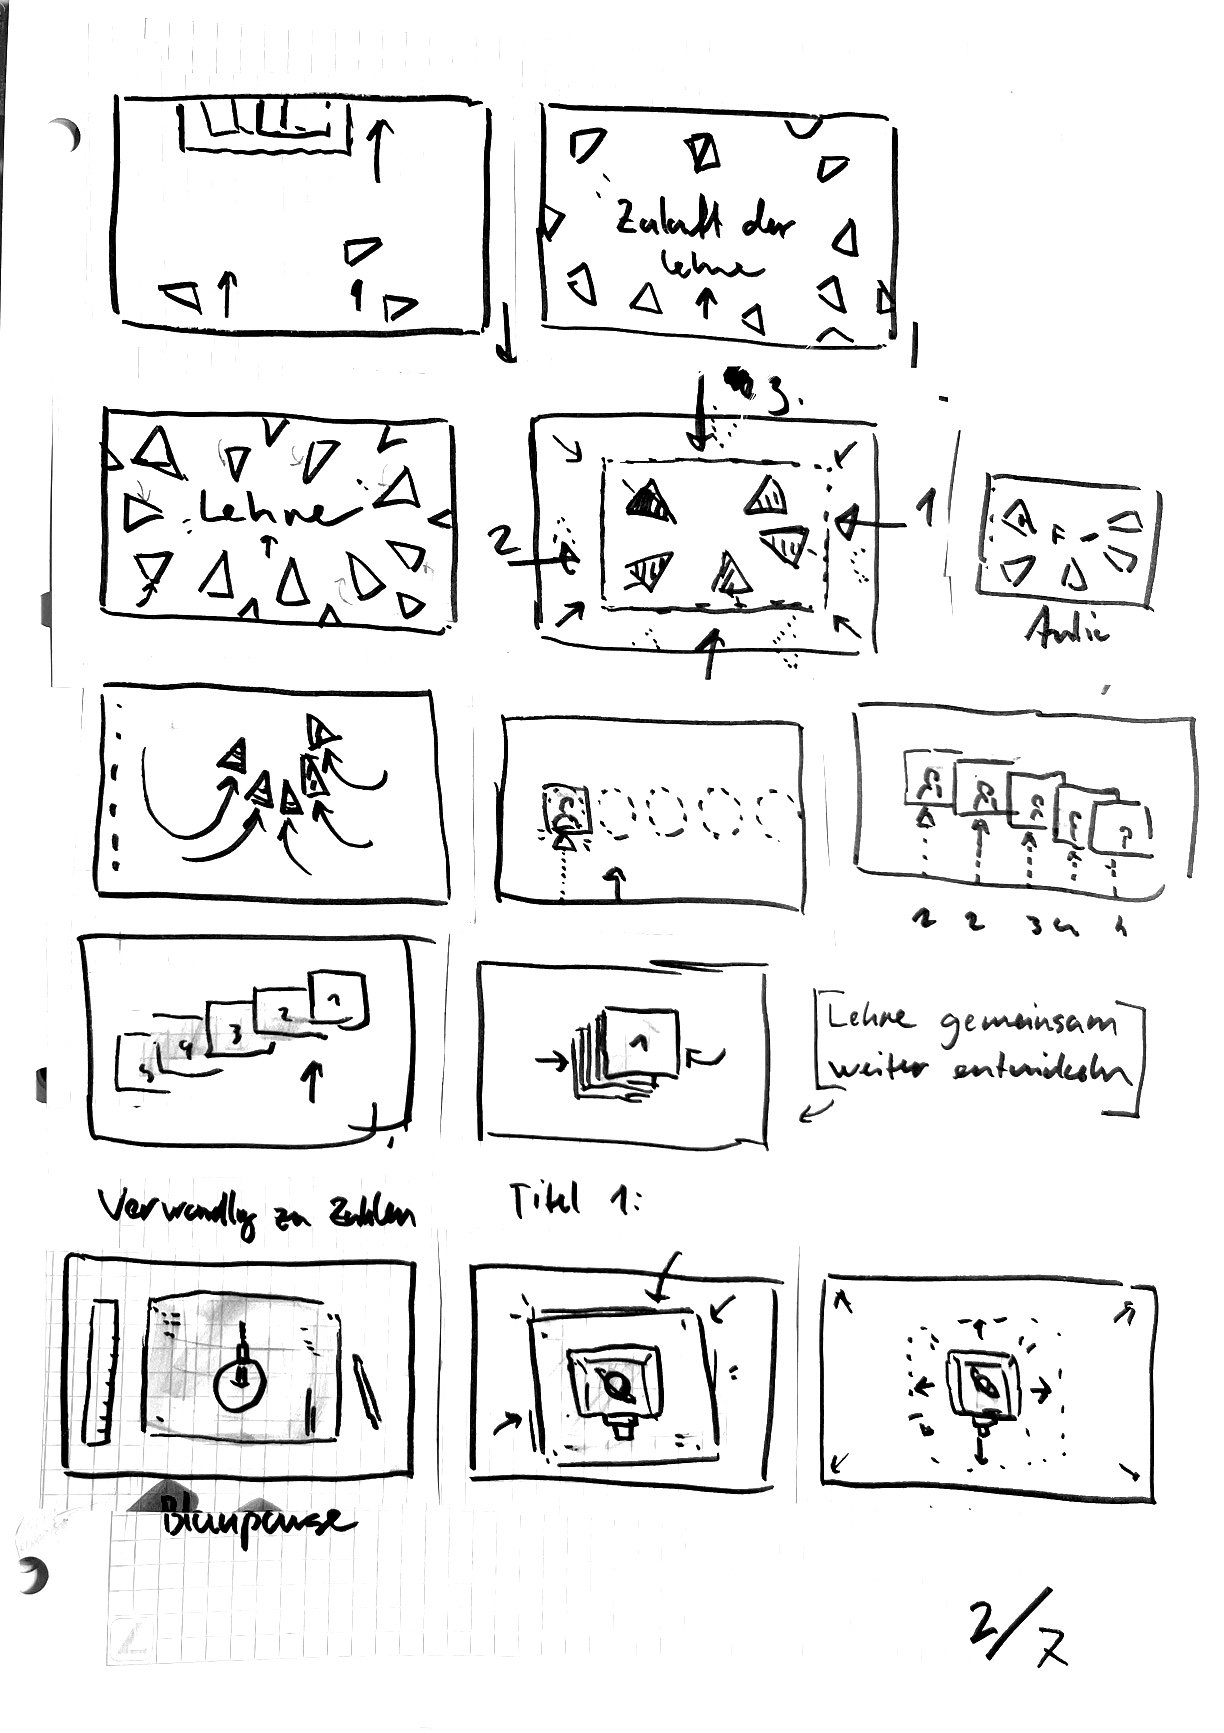 Zukunft der
Lehre
3.
Lehre
2
1
1
2
3
4
5
1
Lehre gemeinsam
weiter entwickeln
Verwandlg zu Zahlen
Titel 1:
Blaupause
2/7